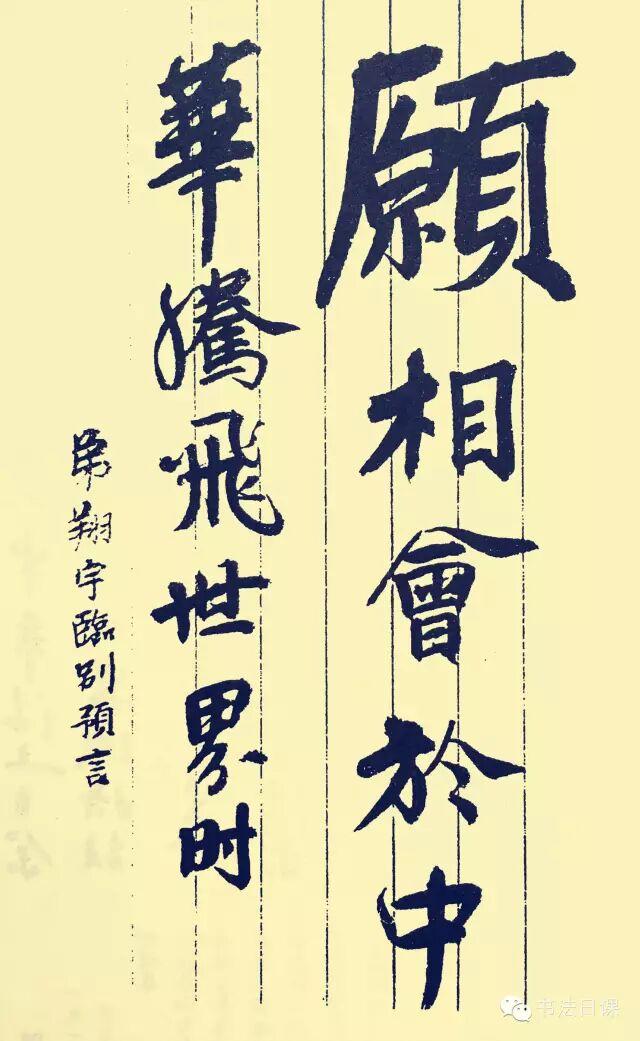 願相會於中
華騰飛世界时
弟翔宇臨别預言
书法日课